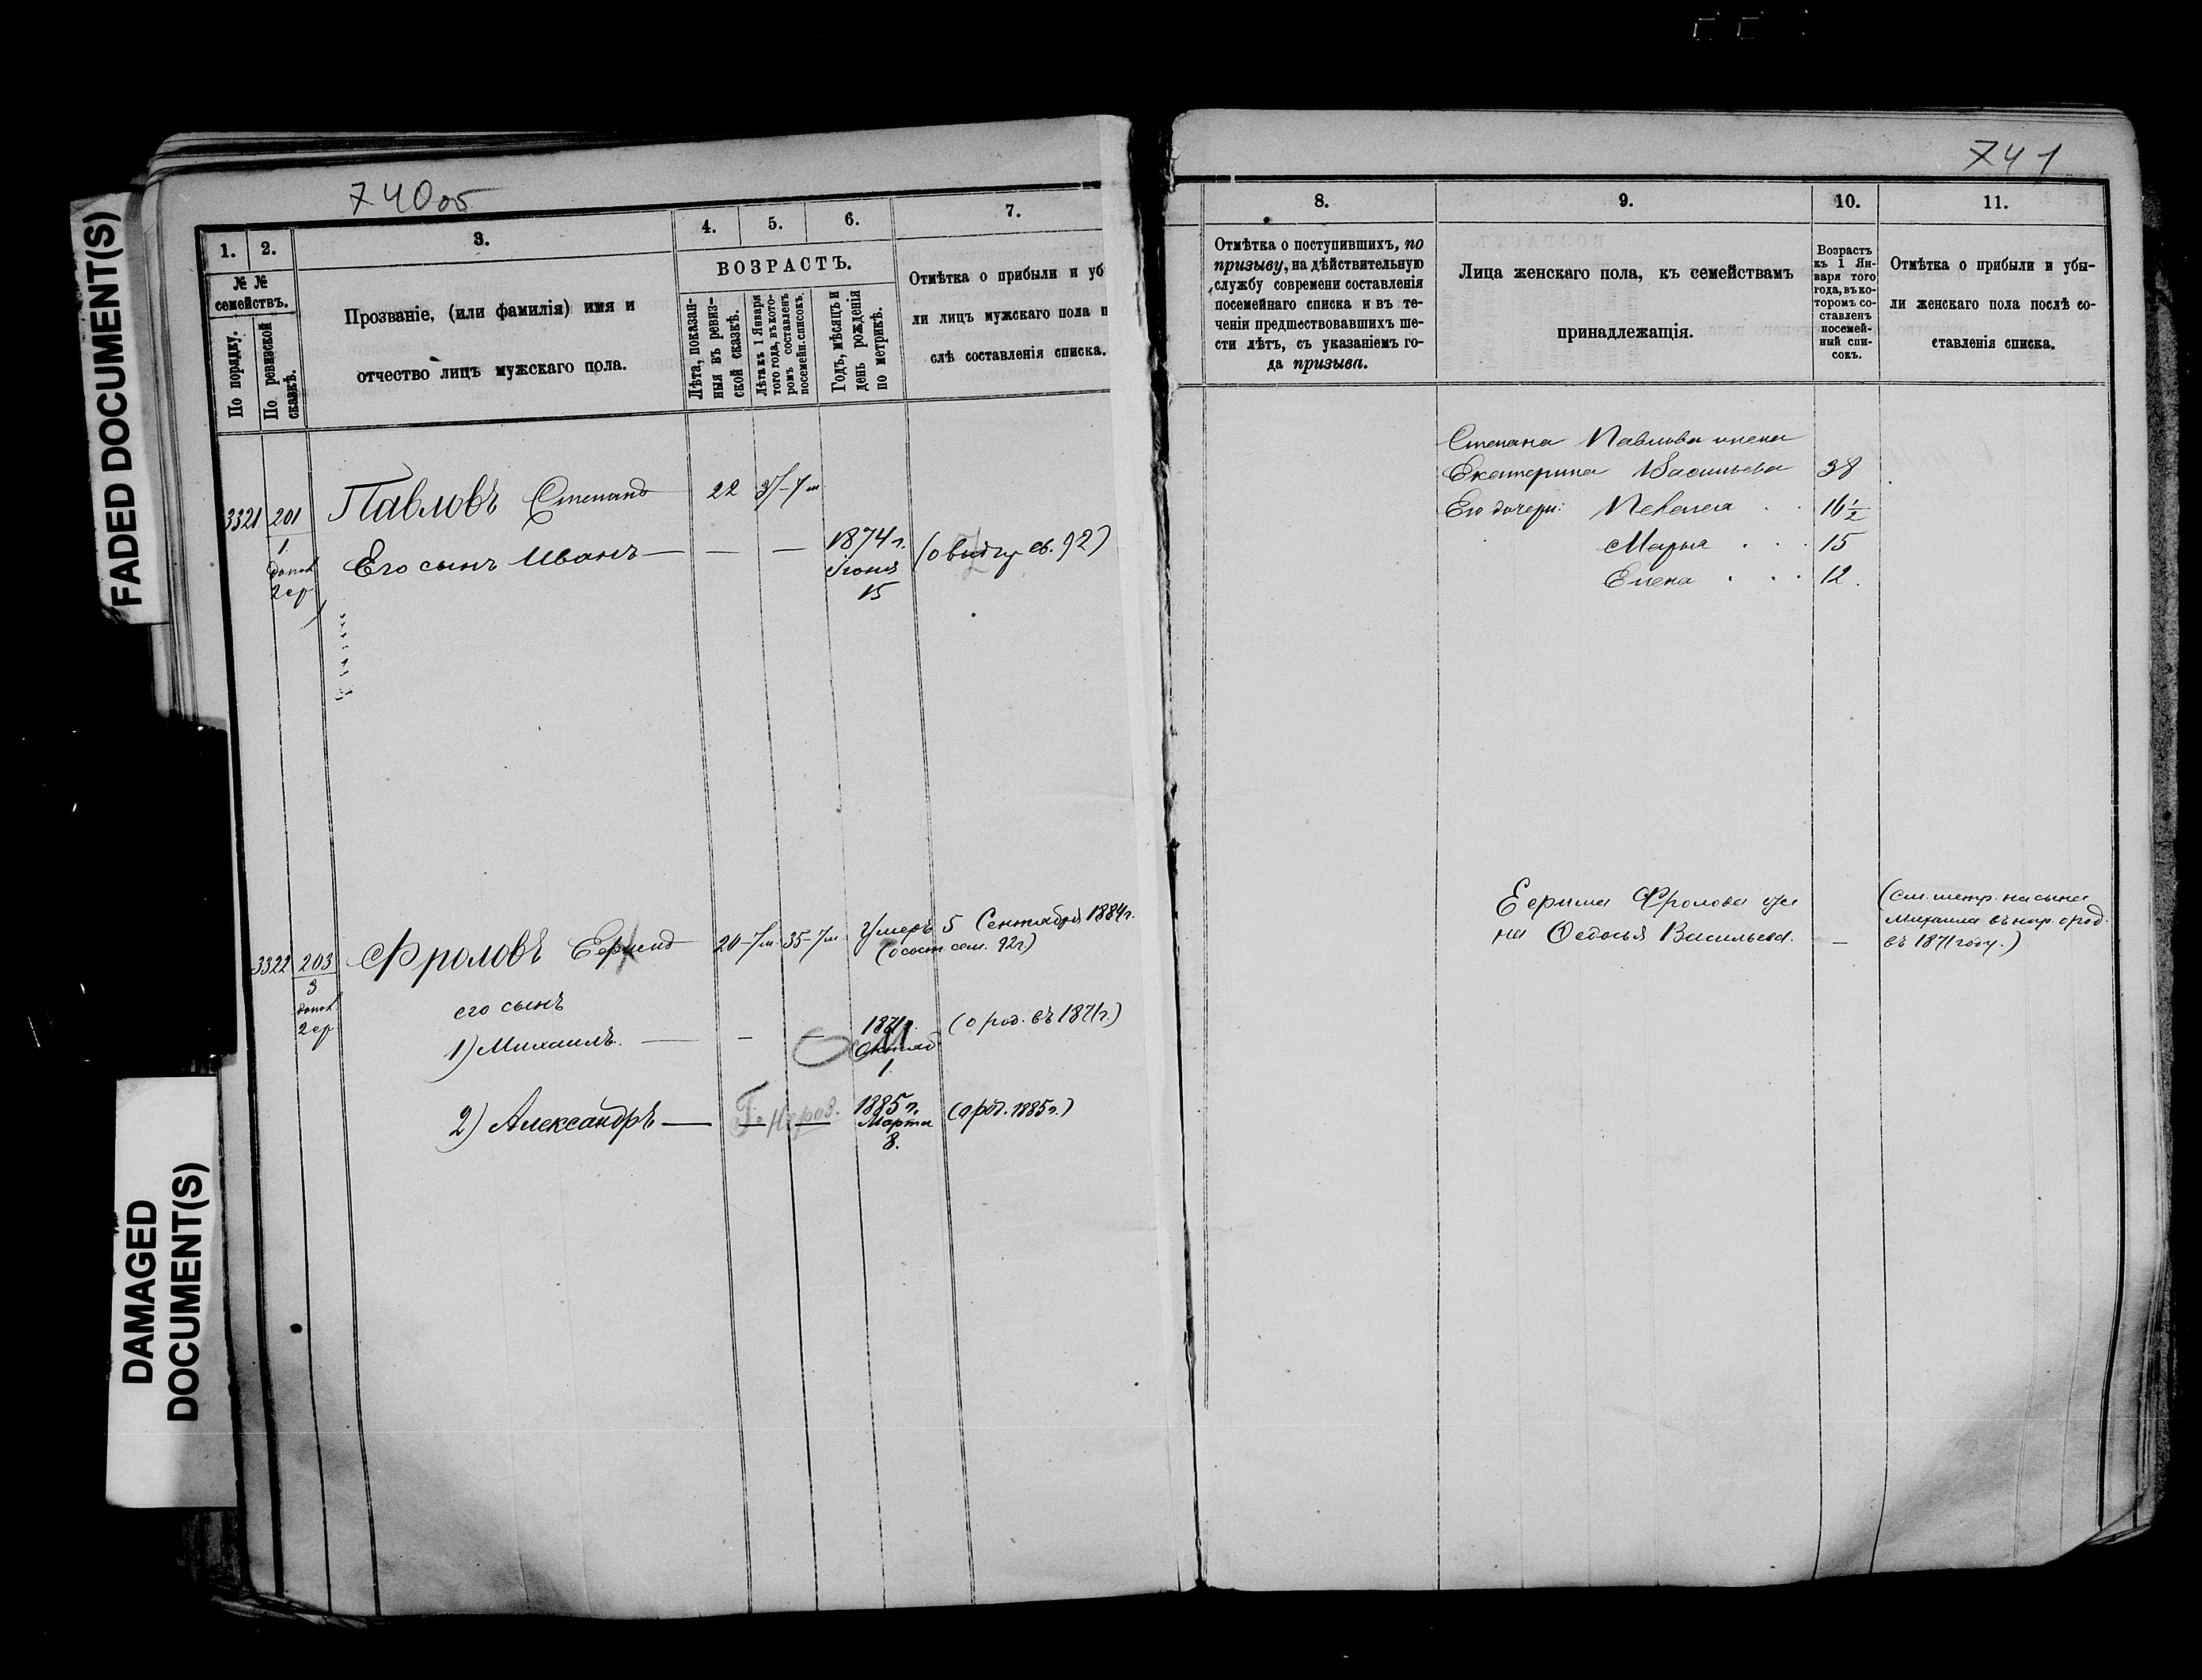 FADED DOCUMENT(S)
DAMAGED
DOCUMENT(S)
740об
1.
2.
3.
4.
5.
6.
7.
№ №
семействъ.
По порядку.
По ревизской
сказкѣ.
Прозваніе, (или фамилія) имя и
отчество лицъ мужскаго пола.
ВОЗРАСТЪ.
Лѣта, показан-
ныя въ ревиз-
ской сказкѣ.
Лѣта къ 1 Января
того года, въ кото-
ромъ составленъ
посемейн. списокъ.
Годъ, мѣсяцъ и
день рожденія
по метрикѣ.
Отмѣтка о прибыли и уб
ли лицъ мужскаго пола п
слѣ составленія списка.
3321 201 Павловъ Степанъ 22 37-7м
1
допол
2ср
Его сынъ Иванъ — — — 1874 г. Іюня 15
3322 203 Фроловъ Ефимъ 20-7м 35-7м Умеръ 5 Сентября 1884г.
(о сост. сем. 92г)
3
допол
2ср
его сынъ
1) Михаилъ. — — — 1871г. Октяб 1. (о род. въ 1871г.)
2) Александръ — — — 1885 г. Марта 8. (о род. 1885г.)
741
8.
9.
10.
11.
Отмѣтка о поступившихъ, по
призыву, на дѣйствительную
службу современи составленія
посемейнаго списка и въ те-
ченіи предшествовавшихъ ше-
сти лѣтъ, съ указаніемъ го-
да призыва.
Лица женскаго пола, къ семействамъ
принадлежащія.
Возрастъ
къ 1 Ян-
варя того
года, въ ко-
торомъ со-
ставленъ
посемей-
ный спи-
сокъ.
Отмѣтка о прибыли и убы-
ли женскаго пола послѣ со-
ставленія списка.
Степана Павлова жена
Екатерина Васильева 38
Его дочери: Пелагея . . 16½
Марья . . . 15
Елена . . . 12.
Ефима Фролова же
на Ѳедосья Васильева. —
(см. метр. на сына
Михаила въ нар. о род.
въ 1871 году.)